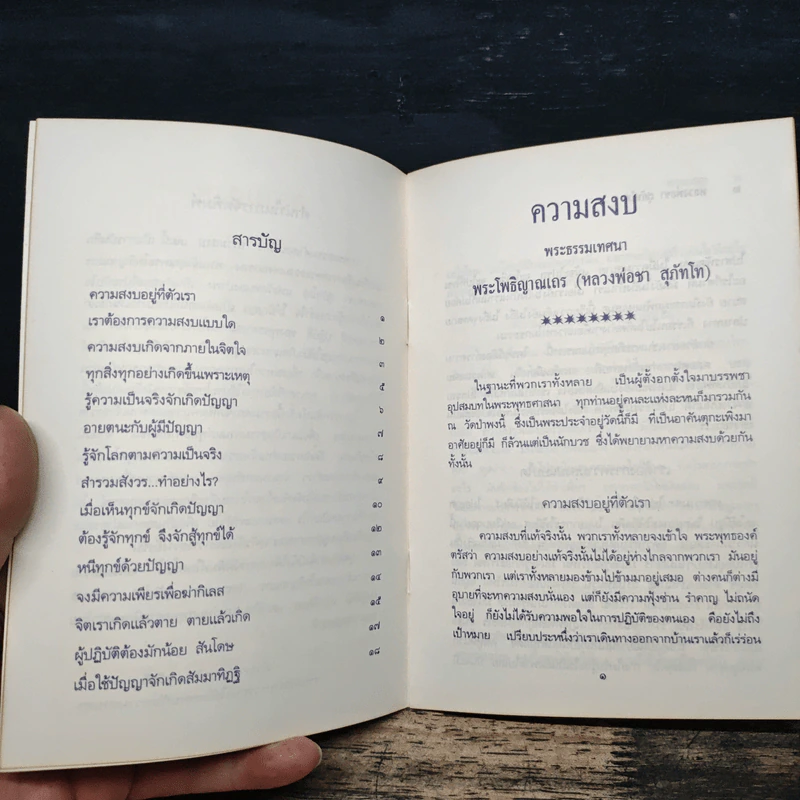 สารบัญ
ความสงบอยู่ที่ตัวเรา ๑
เราต้องการความสงบแบบใด ๒
ความสงบเกิดจากภายในจิตใจ ๓
ทุกสิ่งทุกอย่างเกิดขึ้นเพราะเหตุ ๕
รู้ความเป็นจริงจักเกิดปัญญา ๖
อายตนะกับผู้มีปัญญา ๗
รู้จักโลกตามความเป็นจริง ๘
สำรวมสังวร...ทำอย่างไร? ๙
เมื่อเห็นทุกข์จักเกิดปัญญา ๑๐
ต้องรู้จักทุกข์ จึงจักสู้ทุกข์ได้ ๑๒
หนีทุกข์ด้วยปัญญา ๑๓
จงมีความเพียรเพื่อฆ่ากิเลส ๑๔
จิตเราเกิดแล้วตาย ตายแล้วเกิด ๑๕
ผู้ปฏิบัติต้องมักน้อย สันโดษ ๑๗
เมื่อใช้ปัญญาจักเกิดสัมมาทิฏฐิ ๑๘
ความสงบ
พระธรรมเทศนา
พระโพธิญาณเถร (หลวงพ่อชา สุภัทโท)
********
ในฐานะที่พวกเราทั้งหลาย เป็นผู้ตั้งอกตั้งใจมาบรรพชา
อุปสมบทในพระพุทธศาสนา ทุกท่านอยู่คนละแห่งละหนก็มารวมกัน
ณ วัดป่าพงนี้ ซึ่งเป็นพระประจำอยู่วัดนี้ก็มี ที่เป็นอาคันตุกะเพิ่งมา
อาศัยอยู่ก็มี ก็ล้วนแต่เป็นนักบวช ซึ่งได้พยายามหาความสงบด้วยกัน
ทั้งนั้น
ความสงบอยู่ที่ตัวเรา
ความสงบที่แท้จริงนั้น พวกเราทั้งหลายจงเข้าใจ พระพุทธองค์
ตรัสว่า ความสงบอย่างแท้จริงนั้นไม่ได้อยู่ห่างไกลจากพวกเรา มันอยู่
กับพวกเรา แต่เราทั้งหลายมองข้ามไปข้ามมาอยู่เสมอ ต่างคนก็ต่างมี
อุบายที่จะหาความสงบนั่นเอง แต่ก็ยังมีความฟุ้งซ่าน รำคาญ ไม่ถนัด
ใจอยู่ ก็ยังไม่ได้รับความพอใจในการปฏิบัติของตนเอง คือยังไม่ถึง
เป้าหมาย เปรียบประหนึ่งว่าเราเดินทางออกจากบ้านเราแล้วก็เร่ร่อน
๑